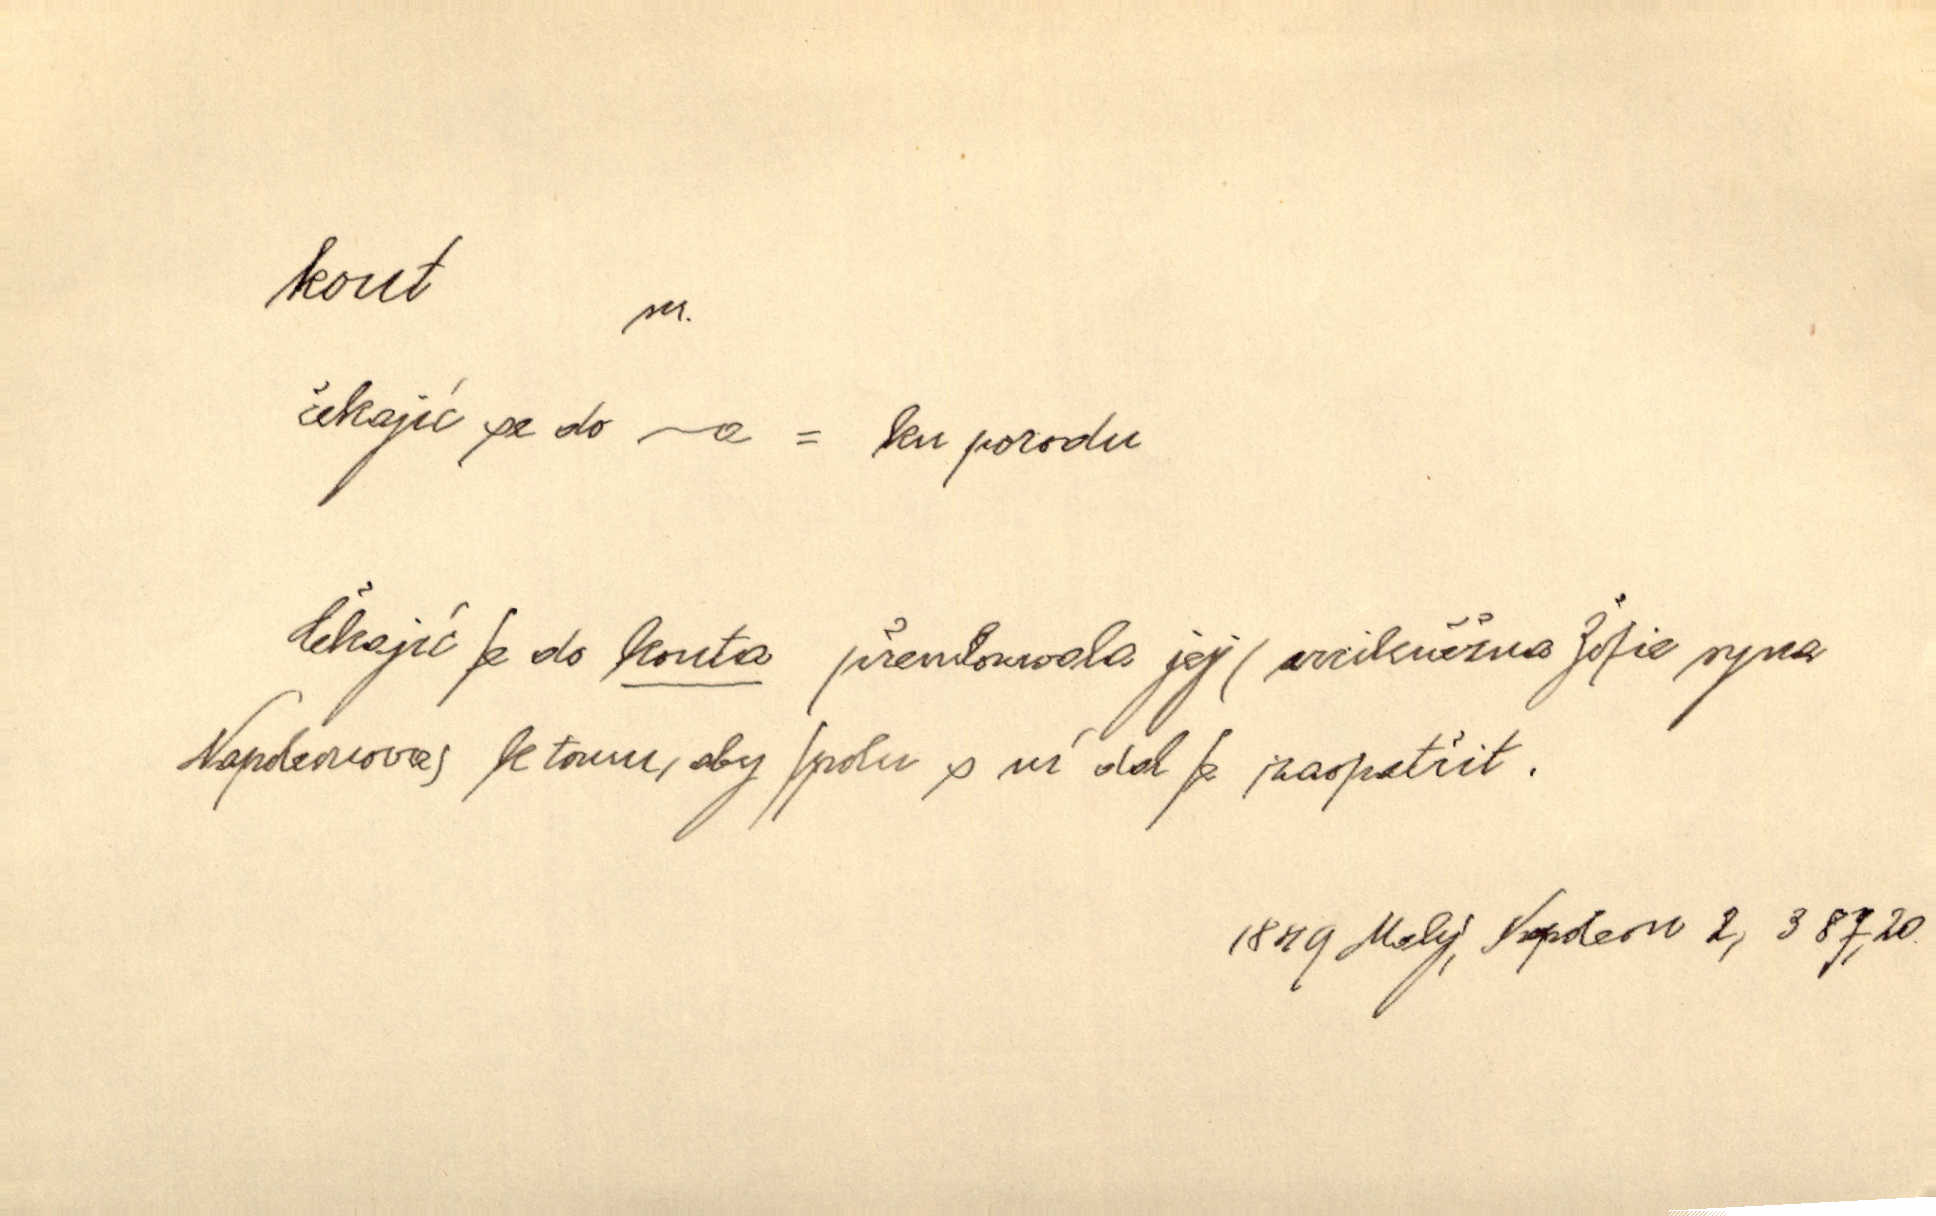 kout
m.
čekajíc se do ~a = ku porodu
Čekajíc ſe do kouta přemlouvala jej (arcikněžna Žofie syna
Napoleonova) k tomu, aby ſpolu s ní dal ſe zaopatřit.
1849 Malý, Napoleon 2, 387,20.